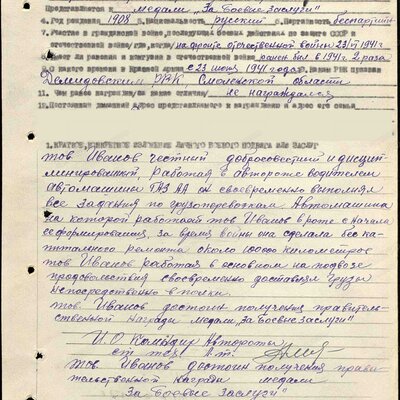 Представляется к медали "За Боевые Заслуги"
4. Год рождения 1908 5. Национальность русский 6. Партийность беспартийн.
7. Участие в гражданской войне, последующих боевых действиях по защите СССР и
отечественной войне (где, когда) на фронте отечественной войны 23/VI 1941 г
8. Имеет ли ранения и контузии в отечественной войне ранен был в 1941 г. 2 раза
9. С какого времени в Красной Армии с 23 июня 1941 года 10. Каким РВК призван
Демидовским РВК, Смоленской области
11. Чем ранее награжден (за какие отличия) не награждался
12. Постоянный домашний адрес представляемого к награждению и адрес его семьи
1. КРАТКОЕ, КОНКРЕТНОЕ ИЗЛОЖЕНИЕ ЛИЧНОГО БОЕВОГО ПОДВИГА ИЛИ ЗАСЛУГ
тов. Иванов честный добросовестный и дисцип-
линированный, работая в автороте водителем
автомашины ГАЗ АА он своевременно выполнял
все задания по грузоперевозкам. Автомашина
на которой работает тов Иванов в роте с начала
её формирования, за время войны она сделала без ка-
питального ремонта около 100000 километров
тов Иванов работая в основном на подвозе
продовольствия своевременно доставлял грузы
непосредственно в полки.
тов. Иванов достоин получения правитель-
ственной награды медали "За Боевые Заслуги"
И.О. Командир Автороты
ст. тех
тов. Иванов достоин получения прави-
тельственной награды медали
"За Боевые Заслуги"